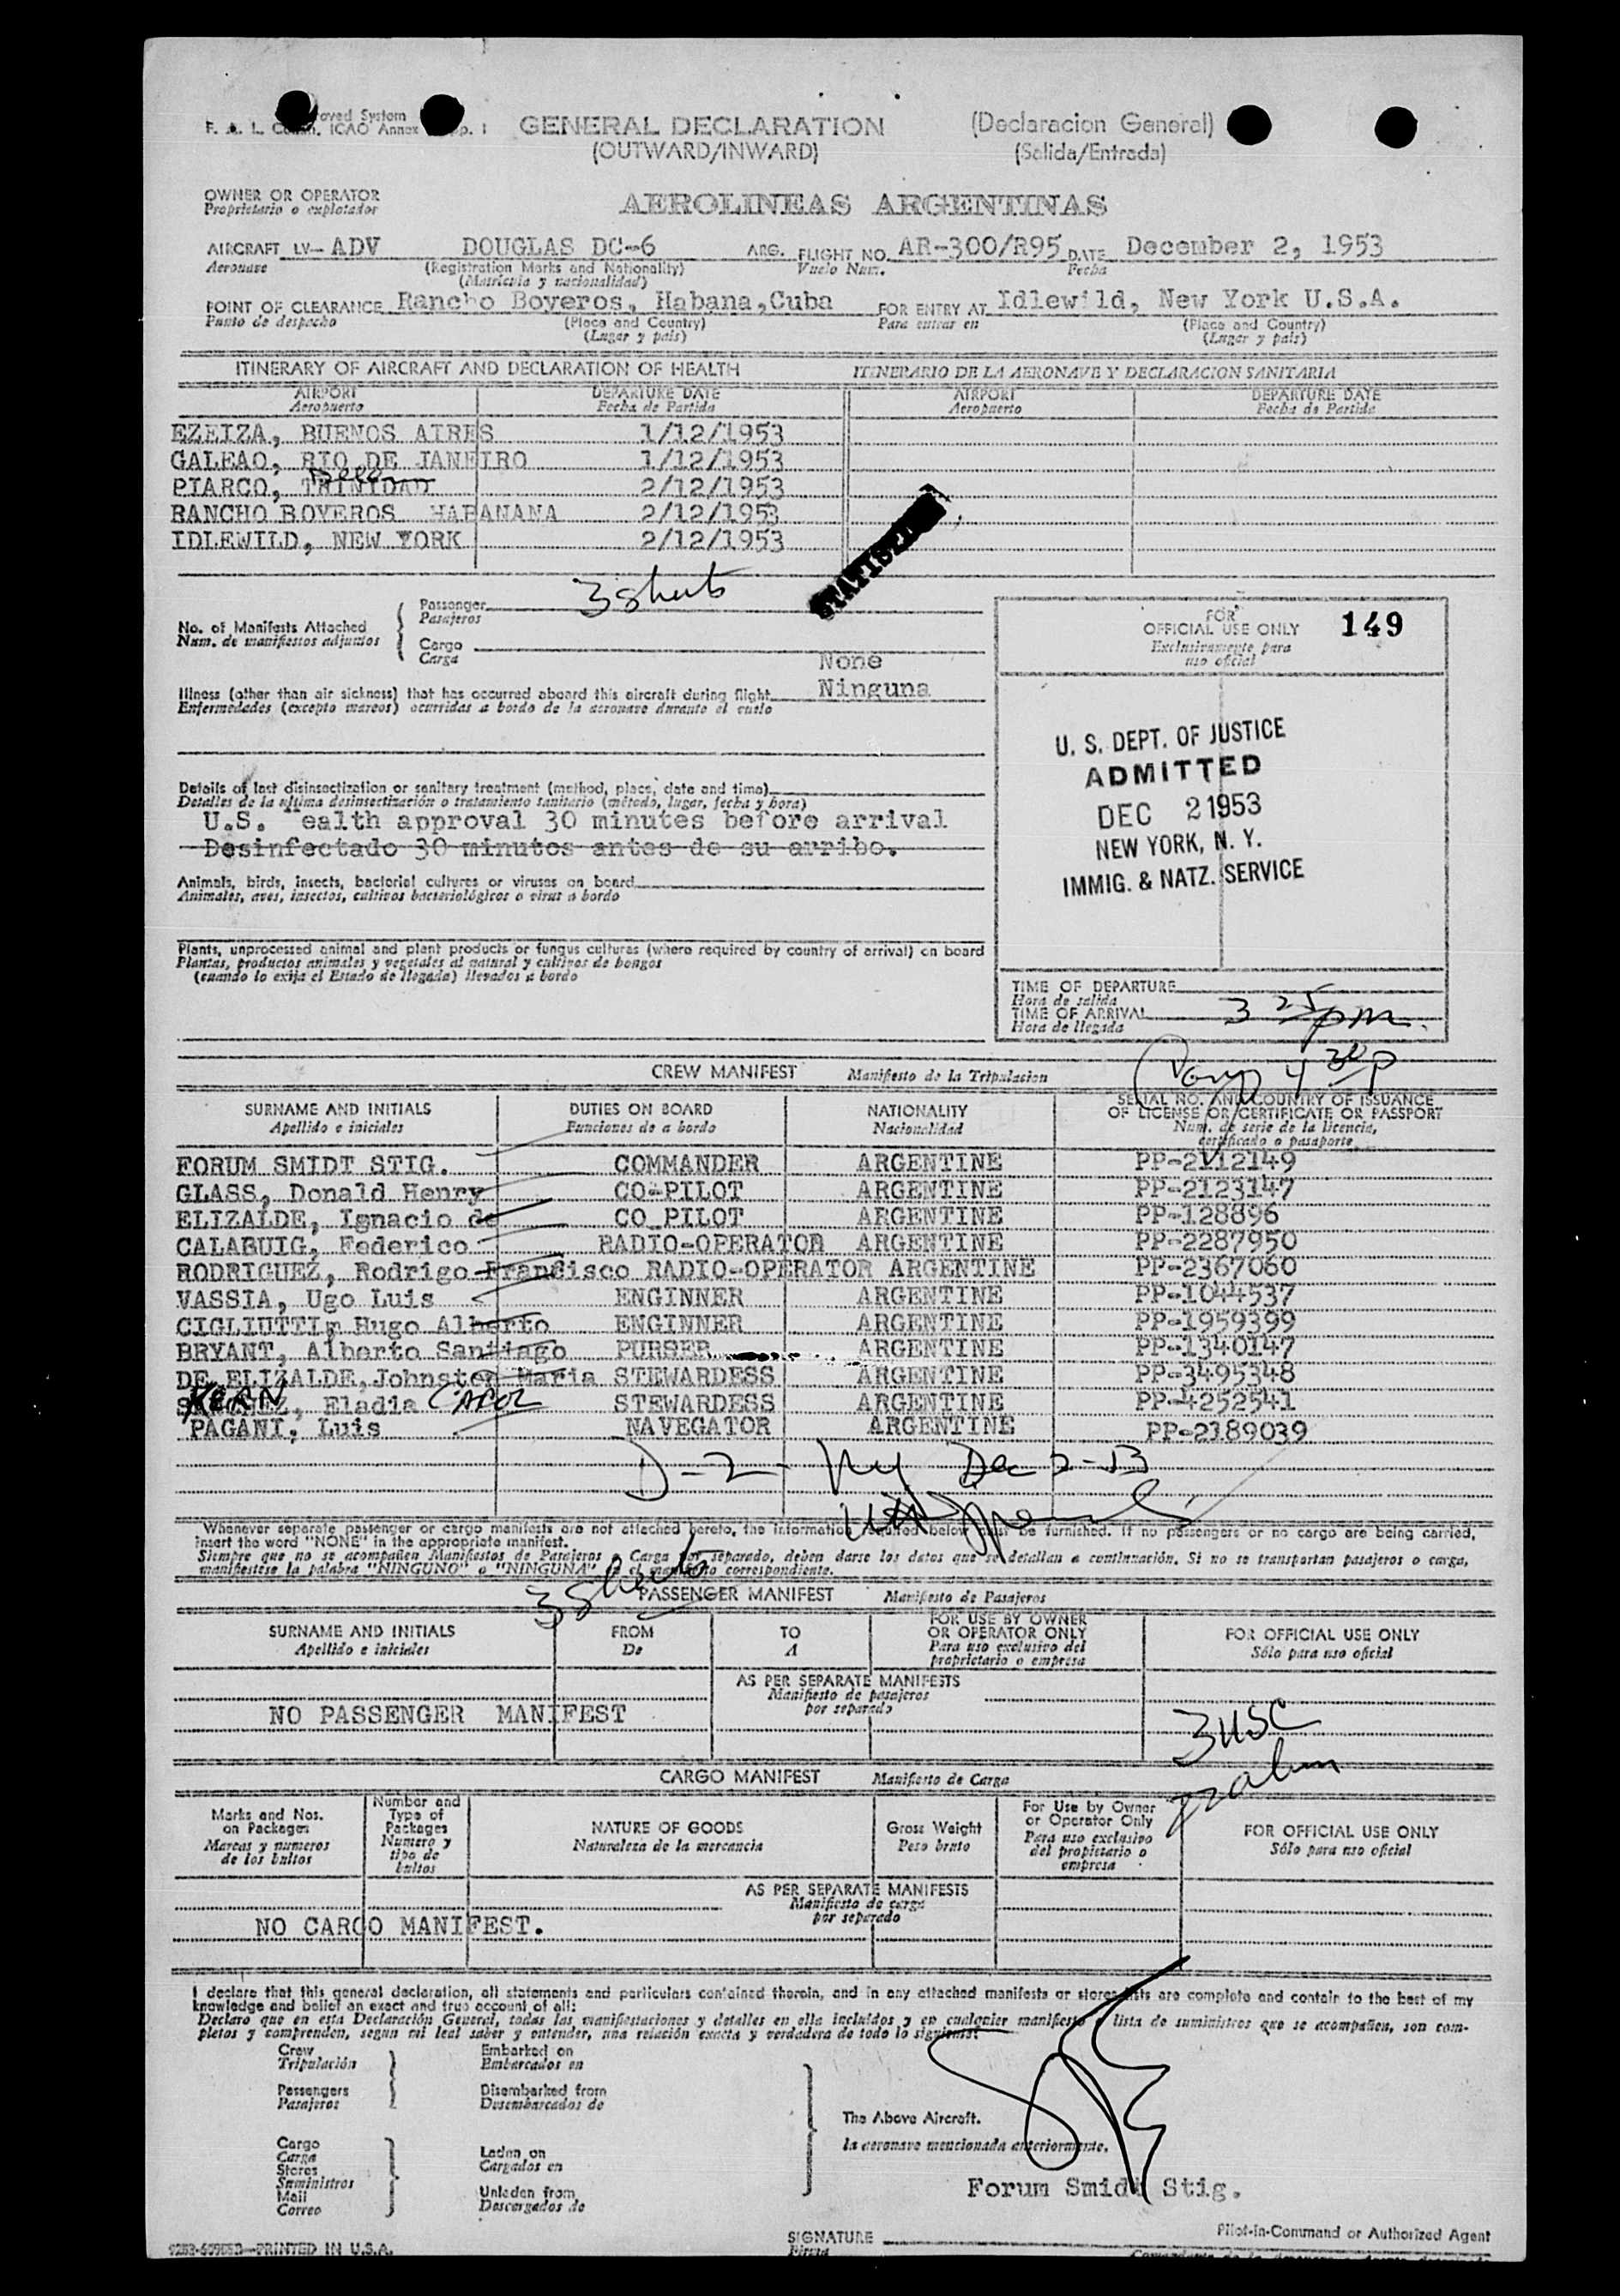 F. A. L. ICAO Annex
GENERAL DECLARATION (Declaracion General)
(OUTWARD/INWARD) (Salida/Entrada)
OWNER OR OPERATOR
Proprietario o explotador
AEROLINEAS ARGENTINAS
AIRCRAFT LV- ADV DOUGLAS DC-6 ARG. FLIGHT NO. AR-300/R95 DATE December 2, 1953
Aeronave (Registration Marks and Nationality) Vuelo Num. Fecha
(Matricula y nacionalidad)
POINT OF CLEARANCE Rancho Boyeros, Habana,Cuba FOR ENTRY AT Idlewild, New York U.S.A.
Punto de despacho (Place and Country) Para entrar en (Place and Country)
(Lugar y pais) (Lugar y pais)
ITINERARY OF AIRCRAFT AND DECLARATION OF HEALTH ITINERARIO DE LA AERONAVE Y DECLARACION SANITARIA
AIRPORT DEPARTURE DATE AIRPORT DEPARTURE DATE
Aeropuerto Fecha de Partida Aeropuerto Fecha de Partida
EZEIZA, BUENOS AIRES 1/12/1953
GALEAO, RIO DE JANEIRO 1/12/1953
PIARCO, TRINIDAD 2/12/1953
RANCHO BOYEROS HABANANA 2/12/1953
IDLEWILD, NEW YORK 2/12/1953
No. of Manifests Attached
Num. de manifiestos adjuntos
Passenger 3 sheets
Pasajeros
Cargo
Carga
None
Illness (other than air sickness) that has occurred aboard this aircraft during flight Ninguna
Enfermedades (excepto mareos) ocurridas a bordo de la aeronave durante el vuelo
Details of last disinsectization or sanitary treatment (method, place, date and time)
Detalles de la ultima desinsectización o tratamiento sanitario (método, lugar, fecha y hora)
U.S. ealth approval 30 minutes before arrival
Desinfectado 30 minutos antes de su arribo.
Animals, birds, insects, bacterial cultures or viruses on board
Animales, aves, insectos, cultivos bacteriológicos o virus a bordo
Plants, unprocessed animal and plant products or fungus cultures (where required by country of arrival) on board
Plantas, productos animales y vegetales al natural y cultivos de hongos
(cuando lo exija el Estado de llegada) llevados a bordo
FOR
OFFICIAL USE ONLY 149
Exclusivamente para
uso oficial
U. S. DEPT. OF JUSTICE
ADMITTED
DEC 2 1953
NEW YORK, N. Y.
IMMIG. & NATZ. SERVICE
TIME OF DEPARTURE
Hora de salida
TIME OF ARRIVAL 3 25 pm.
Hora de llegada
4 30 p
CREW MANIFEST Manifiesto de la Tripulacion
SURNAME AND INITIALS DUTIES ON BOARD NATIONALITY SERIAL NO. AND COUNTRY OF ISSUANCE
Apellido e iniciales Funciones de a bordo Nacionalidad OF LICENSE OR CERTIFICATE OR PASSPORT
Num. de serie de la licencia,
certificado o pasaporte
FORUM SMIDT STIG. COMMANDER ARGENTINE PP-2112149
GLASS, Donald Henry CO-PILOT ARGENTINE PP-2123147
ELIZALDE, Ignacio de CO PILOT ARGENTINE PP-128896
CALABUIG, Federico RADIO-OPERATOR ARGENTINE PP-2287950
RODRIGUEZ, Rodrigo Francisco RADIO-OPERATOR ARGENTINE PP-2367060
VASSIA, Ugo Luis ENGINNER ARGENTINE PP-1044537
CIGLIUTTI, Hugo Alberto ENGINNER ARGENTINE PP-1959399
BRYANT, Alberto Santiago PURSER ARGENTINE PP-1340147
DE ELIZALDE, Johnston Maria STEWARDESS ARGENTINE PP-3495348
KERN Eladia CAROL STEWARDESS ARGENTINE PP-4252541
PAGANI, Luis NAVEGATOR ARGENTINE PP-2189039
D-2- NY Dec 2-53
Whenever separate passenger or cargo manifests are not attached hereto, the information required below must be furnished. If no passengers or no cargo are being carried,
insert the word "NONE" in the appropriate manifest.
Siempre que no se acompañen Manifiestos de Pasajeros o Carga por separado, deben darse los datos que se detallan a continuación. Si no se transportan pasajeros o carga,
manifiestese la palabra "NINGUNO" o "NINGUNA" en el manifiesto correspondiente.
3 sheets
PASSENGER MANIFEST Manifiesto de Pasajeros
SURNAME AND INITIALS FROM TO FOR USE BY OWNER OR OPERATOR ONLY FOR OFFICIAL USE ONLY
Apellido e iniciales De A Para uso exclusivo del propietario o empresa Sólo para uso oficial
AS PER SEPARATE MANIFESTS
Manifiesto de pasajeros
por separado
NO PASSENGER MANIFEST
3 USC
CARGO MANIFEST Manifiesto de Carga
Marks and Nos. on Packages Number and Type of Packages NATURE OF GOODS Gross Weight For Use by Owner or Operator Only FOR OFFICIAL USE ONLY
Marcas y numeros de los bultos Numero y tipo de bultos Naturaleza de la mercancia Peso bruto Para uso exclusivo del propietario o empresa Sólo para uso oficial
AS PER SEPARATE MANIFESTS
Manifiesto de carga
por separado
NO CARGO MANIFEST.
I declare that this general declaration, all statements and particulars contained therein, and in any attached manifests or stores lists are complete and contain to the best of my
knowledge and belief an exact and true account of all:
Declaro que en esta Declaración General, todas las manifestaciones y detalles en ella incluídos y en cualquier manifiesto o lista de suministros que se acompañen, son com-
pletos y comprenden, segun mi leal saber y entender, una relación exacta y verdadera de todo lo siguiente:
Crew Embarked on
Tripulación Embarcados en
Passengers Disembarked from
Pasajeros Desembarcados de
The Above Aircraft.
la aeronave mencionada anteriormente.
Cargo Laden on
Carga Cargados en
Stores
Suministros
Mail Unladen from
Correo Descargados de
Forum Smidt Stig.
SIGNATURE Pilot-in-Command or Authorized Agent
Firma
PRINTED IN U.S.A.